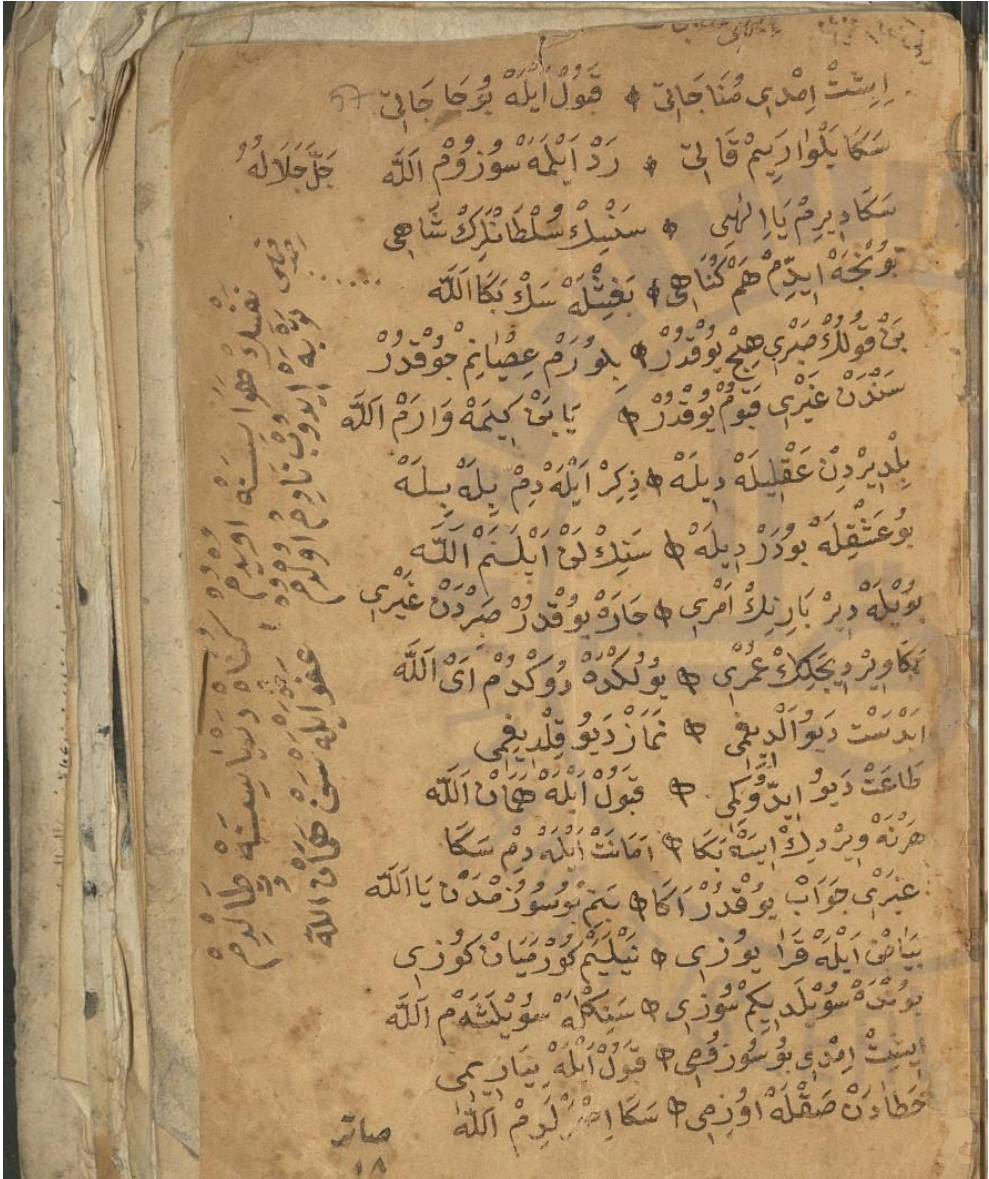 اِيشِتْ اِمْدِي مُنَاجَاتِی ۞ قَبُولْ اَيْلَهْ بُو حَاجَاتِی
سَكَا يَلْوَارِيرِمْ قَاتِی ۞ رَدْ اَيْلَمَهْ سُوزُومْ اَللّٰه جَلَّ جَلَالُهُ
سَكَا دِيرِمْ يَا اِلٰهِي ۞ سَنْسِكْ سُلْطَانْلَرِكْ شَاهِي
بُونْجَهْ اِيدِّمْ هَمْ كُنَاهِي ۞ بَغِشْلَهْ سَكْ بَكَا اَللّٰه
بَنْ قُولُكْ صَبْرِي هِيچْ يُوقْدُرْ ۞ بِلُورَمْ عِصْيَانِمْ چُوقْدُرْ
سَنْدَنْ غَيْرِي قَپُومْ يُوقْدُرْ ۞ يَا بَنْ كِيمَهْ وَارَمْ اَللّٰه
بِلْدِيرْدِنْ عَقْلِيلَهْ دِيلَهْ ۞ ذِكِرْ اَيْلَهْ دِمْ بِلَهْ بِلَهْ
بُو عَشْقِلَهْ بُودَرْ دِيلَهْ ۞ سَنِكْ لَنْ اَيْلَنَمْ اَللّٰه
بُويْلَهْ دِيرْ بَارِنِكْ اَمْرِي ۞ چَارَهْ يُوقْدُرْ صَبِرْدَنْ غَيْرِي
بَكَا وِيرْدِيجَكِكْ عُمْرِي ۞ يُولُكْدَهْ دُوكْدُمْ اَيْ اَللّٰه
اَبْدَسْتْ دَيُو اَلْدِيغِمِي ۞ نَمَازْ دَيُو قِلْدِيغِمِي
طَاعَتْ دَيُو اِيدّوُكِمِي ۞ قَبُولْ اَيْلَهْ هَمَانْ اَللّٰه
هَرْنَهْ وِيرْدِكْ اِيسَهْ بَكَا ۞ اَمَانَتْ اَيْلَهْ دِمْ سَكَا
غَيْرِي جَوَابْ يُوقْدُرْ اَكَا ۞ بَنِمْ بُو سُوزُمْدَنْ يَا اَللّٰه
بَيَاضْ اَيْلَهْ قَرَا يُوزِي ۞ نَيْلَيَيِمْ كُورْمَيَانْ كُوزِي
بُونْدَهْ سُويْلَدِيكِمْ سُوزِي ۞ سَنِكْلَهْ سُويْلَشَهْ م اَللّٰه
اِيشِتْ اِمْدِي بُو سُوزُمِي ۞ قَبُولْ اَيْلَهْ نِيَازِيمِي
خَطَادَنْ صَقْلَهْ اُوزِمِي ۞ سَكَا اِصْمَرْلَدِمْ اَللّٰه
نَفْسِكْ هَوَاسِنَهْ اُويْدُمْ
كُنَاهْ دَرْيَاسِنَهْ طَالْدِمْ
تَوْبَهْ اِيدُوبْ نَادِمْ اُولْدُمْ
عَفُو اَيْلَهْ سِنْ هَمَانْ اَللّٰه